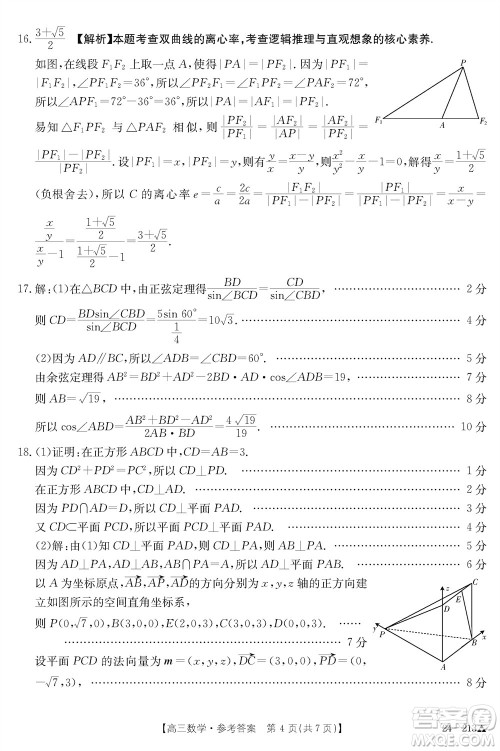 16. (3+√5)/2 【解析】本题考查双曲线的离心率,考查逻辑推理与直观想象的核心素养.
如图,在线段F₁F₂上取一点A,使得|PA|=|PF₂|,则∠PAF₂=∠PF₂F₁=72°,
∠APF₁=72°-36°=36°,从而|AF₁|=|PA|=|PF₂|,∠APF₂=36°.
易知△F₁PF₂与△PAF₂相似,则|PF₂|/|PF₁|=|AF₂|/|AP|=|AF₂|/|PF₂|=
(|PF₁|-|PF₂|)/|PF₂|.设|PF₁|=x,|PF₂|=y,则有y/x=(x-y)/y,则x²/y²-x/y-1=0,解得x/y=(1+√5)/2
(负根舍去),所以C的离心率e=c/a=2c/2a=|F₁F₂|/(|PF₁|-|PF₂|)=|PF₁|/(|PF₁|-|PF₂|)=x/(x-y)
=(x/y)/(x/y-1)=((1+√5)/2)/((1+√5)/2-1)=(3+√5)/2.
P
F₁ A F₂
17. 解:(1)在△BCD中,由正弦定理得BD/sin∠BCD=CD/sin∠CBD, 2分
则CD=BDsin∠CBD/sin∠BCD=5sin 60°/(1/4)=10√3. 4分
(2)因为AD∥BC,所以∠ADB=∠CBD=60°. 5分
由余弦定理得AB²=AD²+BD²-2AD·BDcos∠ADB=19, 7分
则AB=√19, 8分
所以cos∠ABD=(AB²+BD²-AD²)/(2AB·BD)=4√19/19. 10分
18. (1)证明:在正方形ABCD中,CD=AB=3.
因为CD²+PD²=PC²,所以CD⊥PD. 1分
在正方形ABCD中,CD⊥AD. 2分
因为PD∩AD=D,所以CD⊥平面PAD. 3分
又CD⊂平面PCD,所以平面PCD⊥平面PAD. 4分
(2)解:由(1)知CD⊥平面PAD,所以CD⊥PA. 5分
因为AD⊥PA,AD⊥AB,PA∩AB=A,所以AD⊥平面PAB. 6分
以A为坐标原点,AB,AP,AD的方向分别为x,y,z轴的正方向建立
如图所示的空间直角坐标系,
则P(0,√7,0),B(3,0,0),C(3,0,3),D(0,0,3),E(2,0,3).
7分
设平面PCD的法向量为m=(x,y,z),DC=(3,0,0),PD=(0,-√7,3),
8分
z
D
E
C
y
P
A
B
x
【高三数学·参考答案 第4页(共7页)】